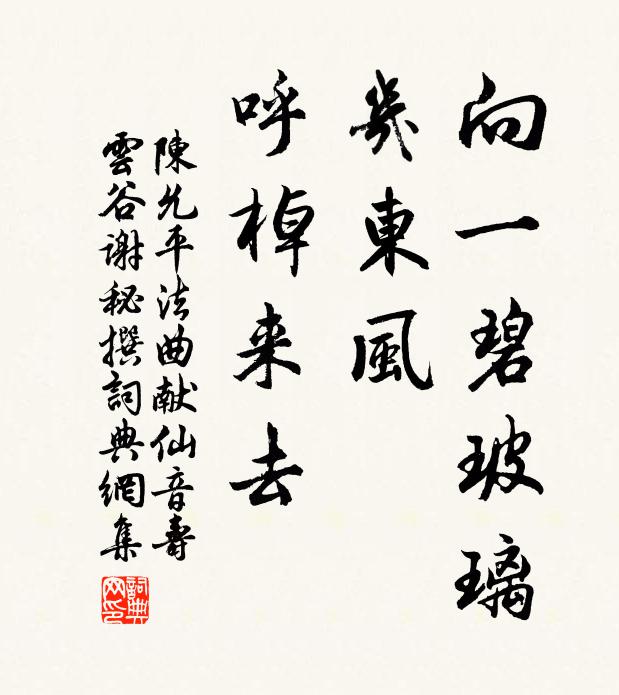 向一碧玻璃
幾東風
呼棹来去
陳允平法曲献仙音壽
雲谷谢秘撰詞典網集
詞典网印